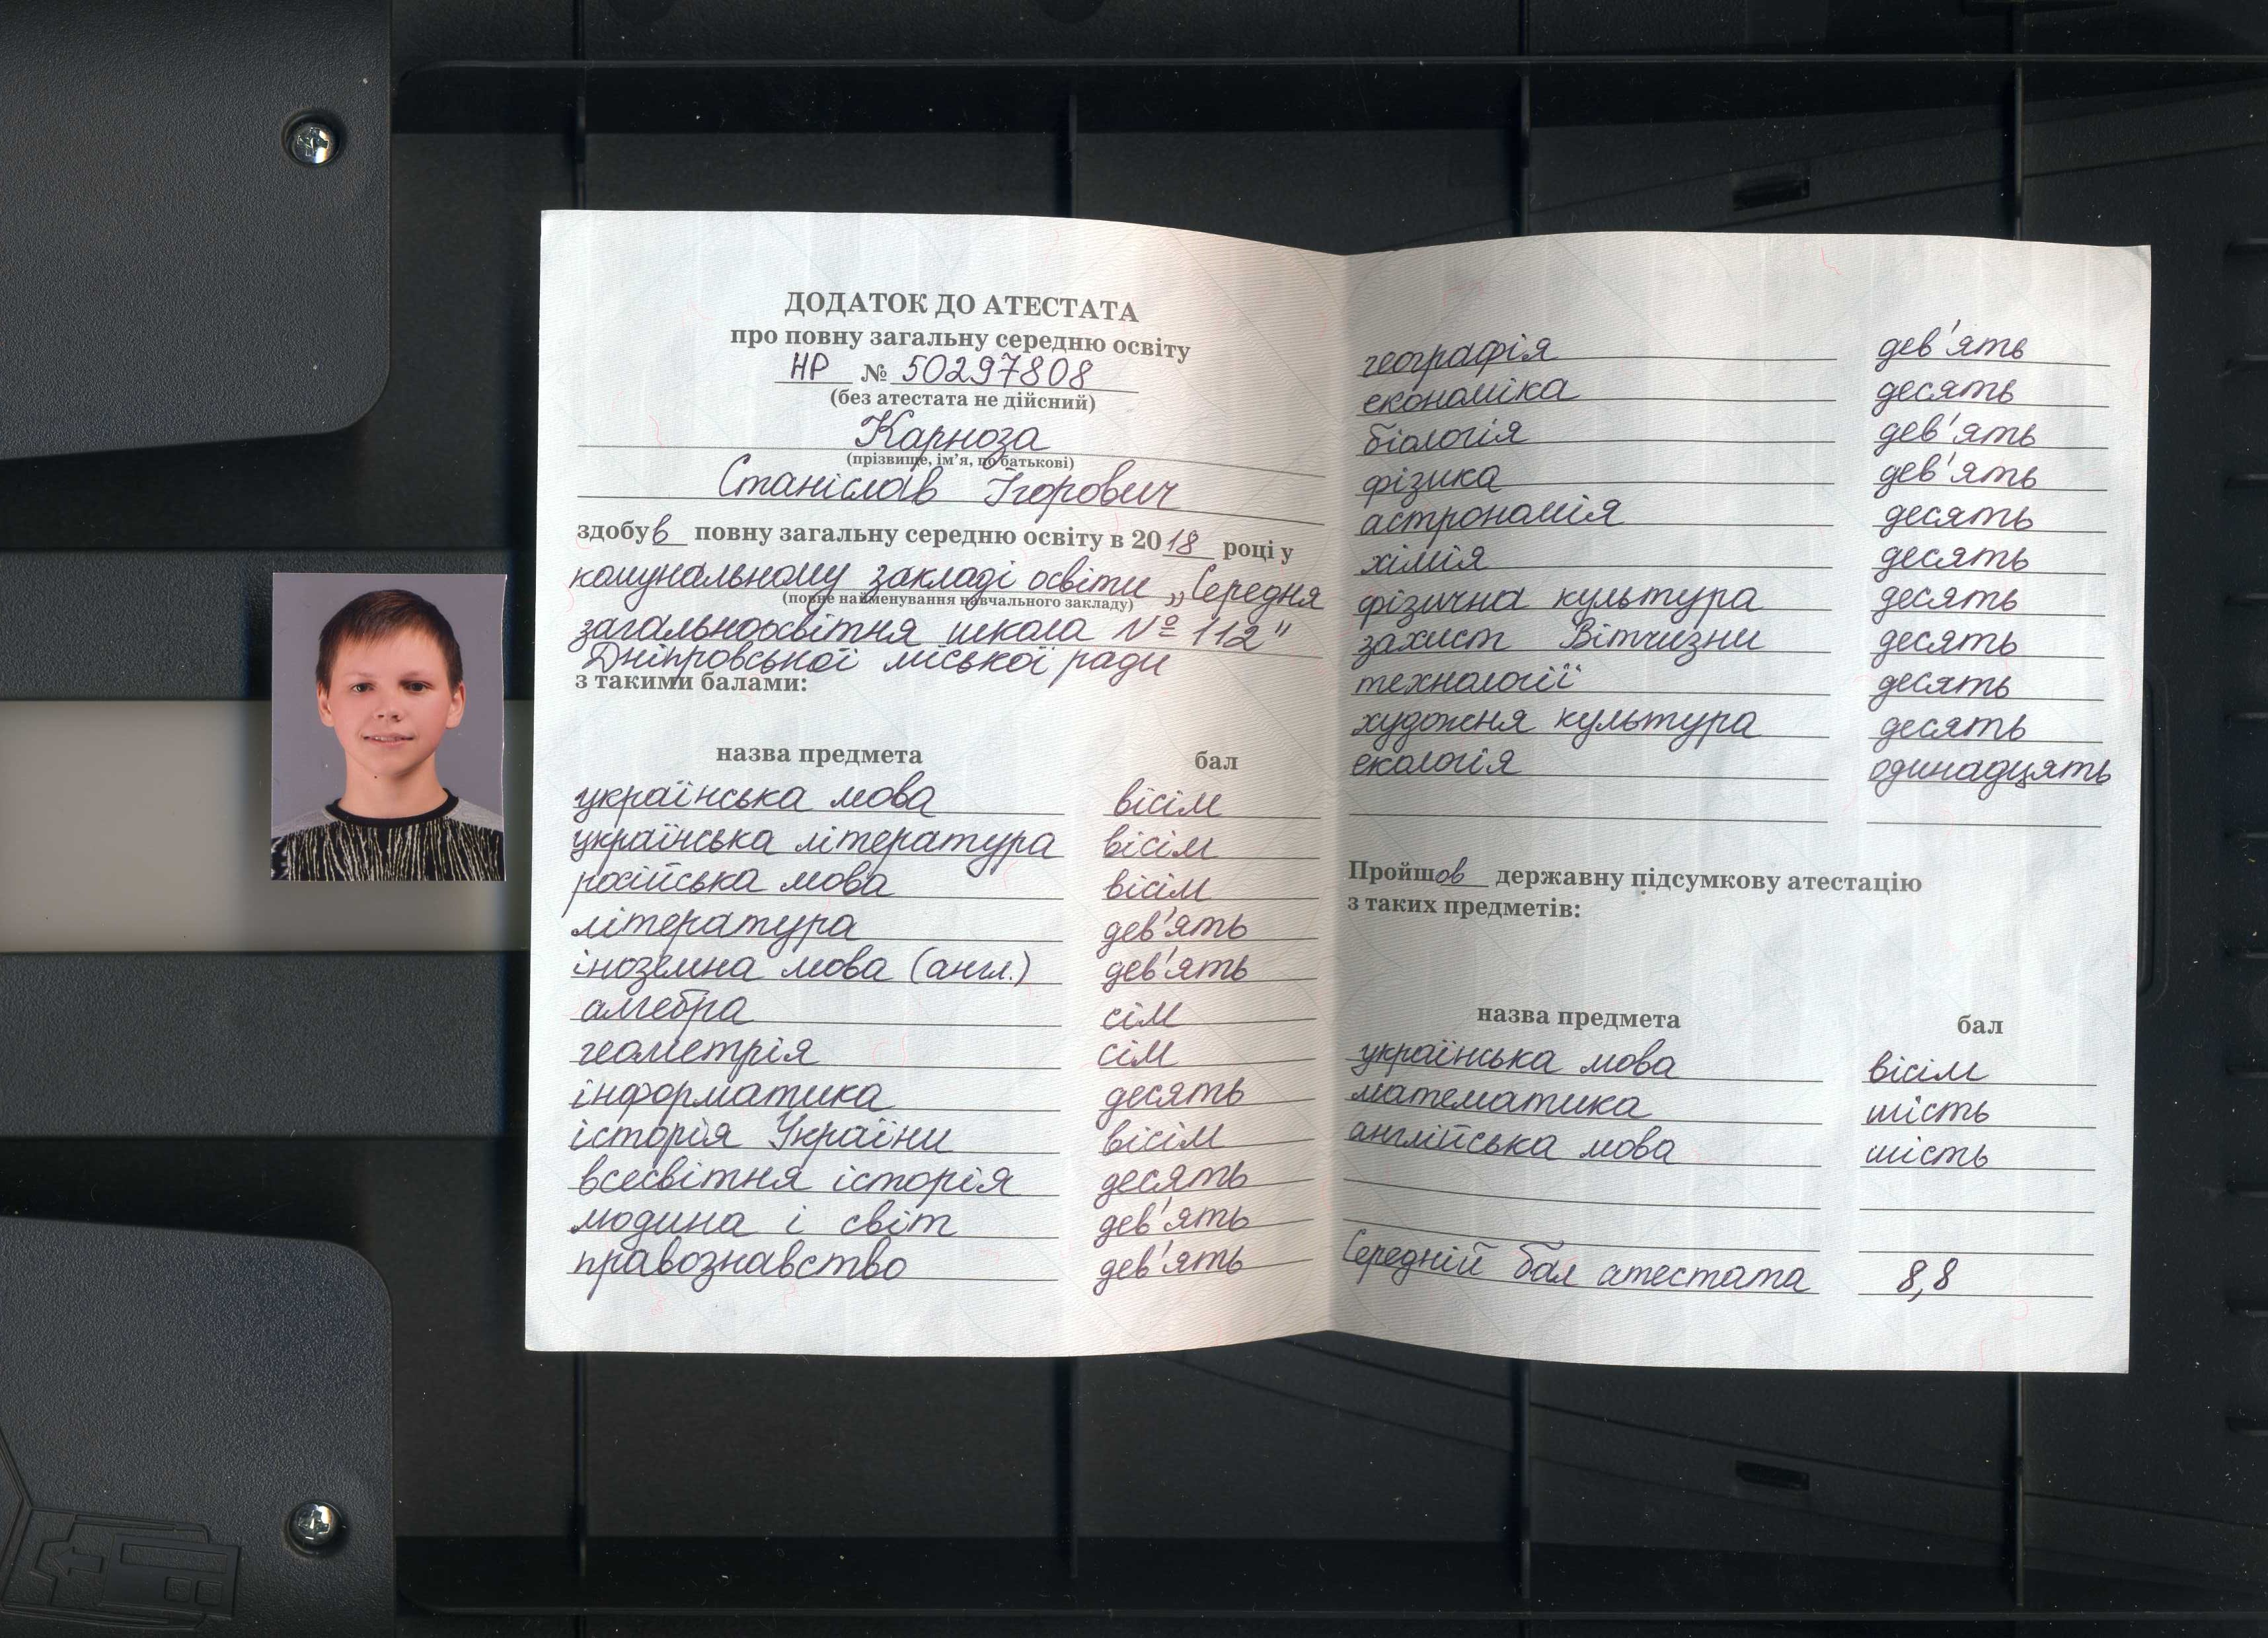 ДОДАТОК ДО АТЕСТАТА
про повну загальну середню освіту
НР № 50297808
(без атестата не дійсний)
Карноза
(прізвище, ім’я, по батькові)
Станіслав Ігорович
здобув повну загальну середню освіту в 2018 році у
комунальному закладі освіти „Середня
(повне найменування навчального закладу)
загальноосвітня школа № 112"
Дніпровської міської ради
з такими балами:
назва предмета бал
українська мова вісім
українська література вісім
російська мова вісім
література дев'ять
іноземна мова (англ.) дев'ять
алгебра сім
геометрія сім
інформатика десять
історія України вісім
всесвітня історія десять
людина і світ дев'ять
правознавство дев'ять
географія дев'ять
економіка десять
біологія дев'ять
фізика дев'ять
астрономія десять
хімія десять
фізична культура десять
захист Вітчизни десять
технології десять
художня культура десять
екологія одинадцять
Пройшов державну підсумкову атестацію
з таких предметів:
назва предмета бал
українська мова вісім
математика шість
англійська мова шість
Середній бал атестата 8,8